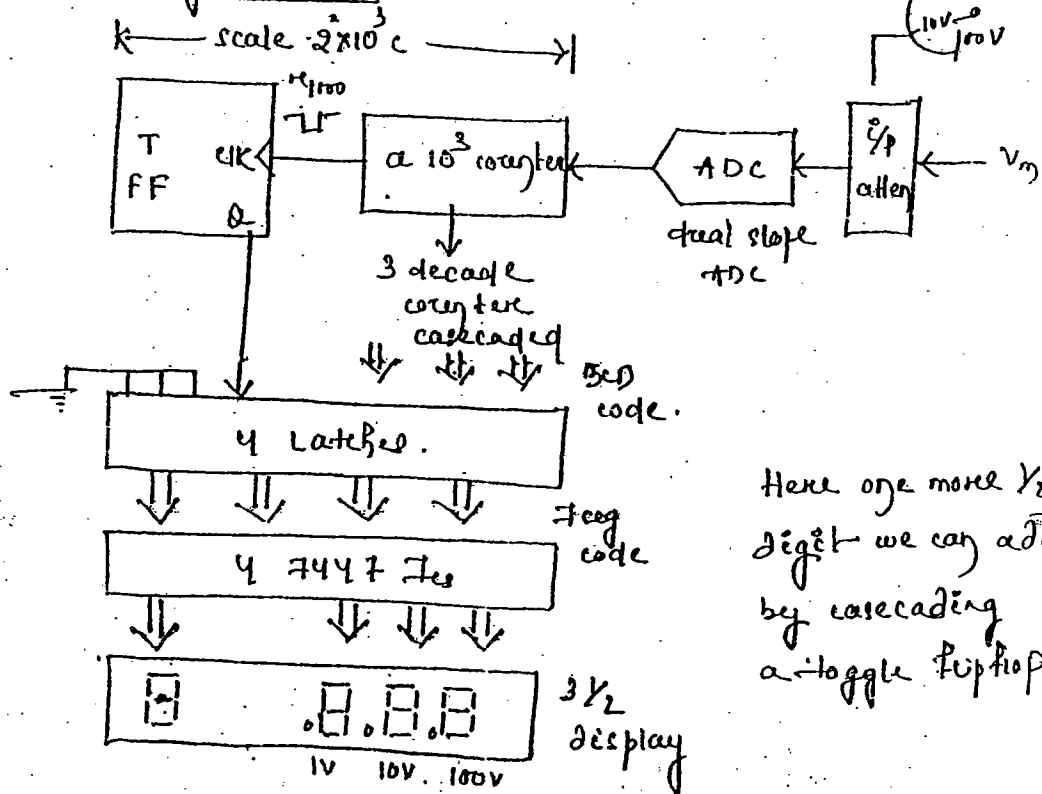 scale 2×10³ c
10V
100V
T
FF
CLK
Q
a 10³ counter
ADC
i/p
atten
Vin
dual slope
ADC
3 decade
counter
cascaded
BCD
code.
4 Latches.
7 seg
code
4 7447 Ics
3 1/2
display
1V 10V. 100V
Here one more 1/2
digit we can ad
by casecading
a toggle flipflop